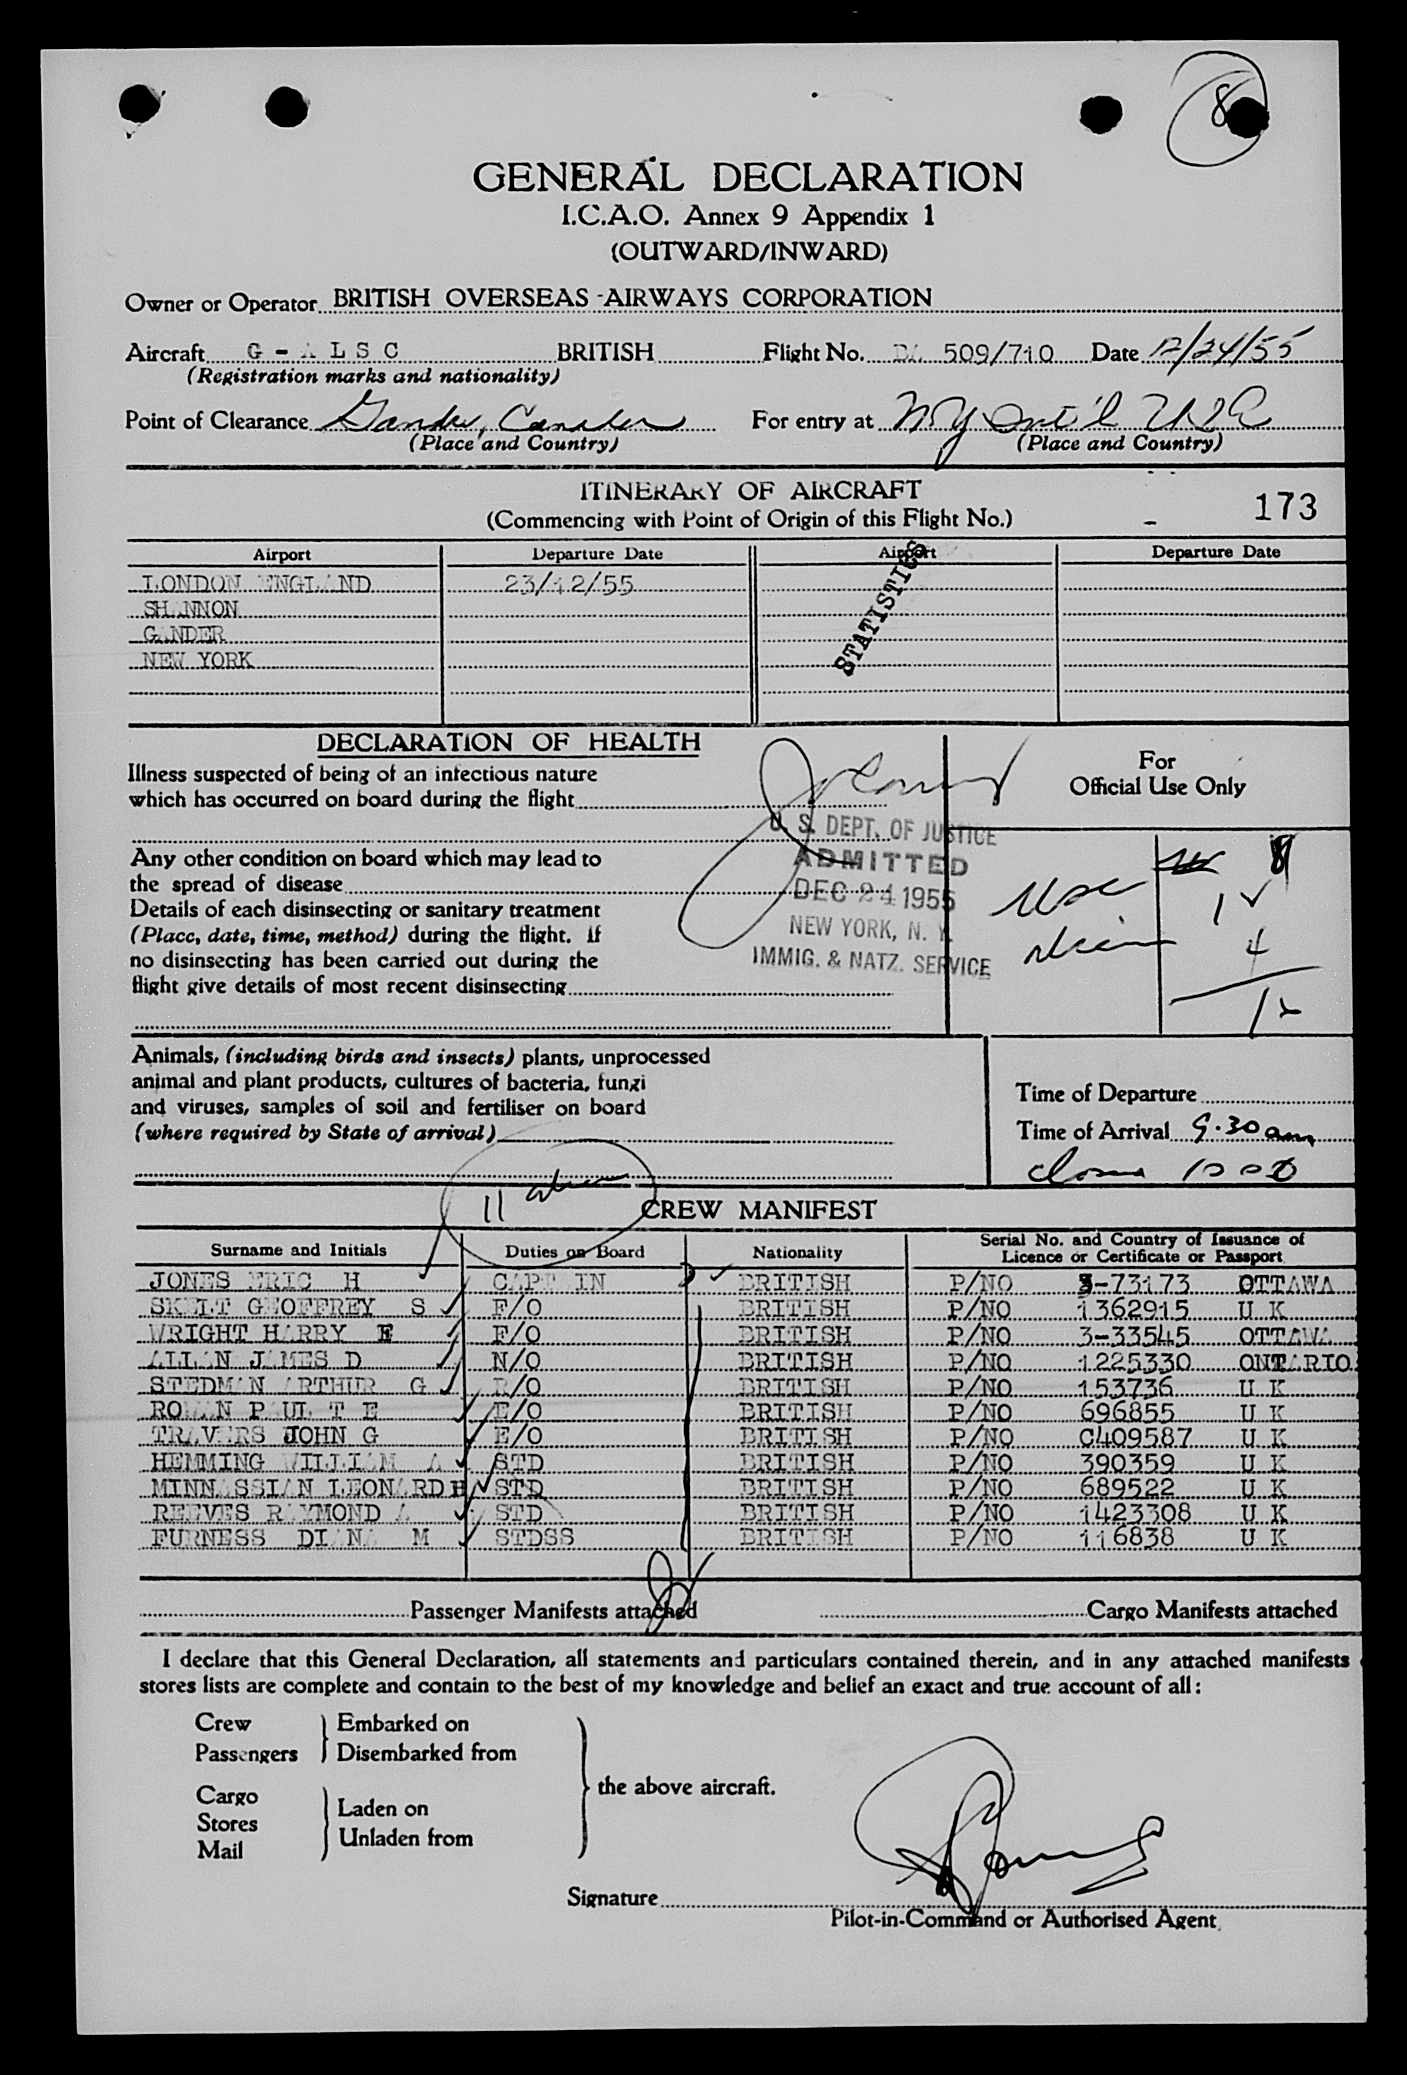 8
GENERAL DECLARATION
I.C.A.O. Annex 9 Appendix 1
(OUTWARD/INWARD)
Owner or Operator BRITISH OVERSEAS AIRWAYS CORPORATION
Aircraft G - A L S C BRITISH Flight No. BA 509/710 Date 12/24/55
(Registration marks and nationality)
Point of Clearance Gander, Canada For entry at NY Int'l USA
(Place and Country) (Place and Country)
ITINERARY OF AIRCRAFT
(Commencing with Point of Origin of this Flight No.) 173
Airport Departure Date Airport Departure Date
STATISTICS
LONDON ENGLAND 23/12/55
SHANNON
GANDER
NEW YORK
DECLARATION OF HEALTH
Illness suspected of being of an infectious nature
which has occurred on board during the flight
For
Official Use Only
Any other condition on board which may lead to
the spread of disease
Details of each disinsecting or sanitary treatment
(Place, date, time, method) during the flight. If
no disinsecting has been carried out during the
flight give details of most recent disinsecting
U. S. DEPT. OF JUSTICE
ADMITTED
DEC 24 1955
NEW YORK, N. Y.
IMMIG. & NATZ. SERVICE
USC 8
1
4
12
Animals, (including birds and insects) plants, unprocessed
animal and plant products, cultures of bacteria, fungi
and viruses, samples of soil and fertiliser on board
(where required by State of arrival)
Time of Departure
Time of Arrival 9.30 am
1000
11
CREW MANIFEST
Surname and Initials Duties on Board Nationality Serial No. and Country of Issuance of
Licence or Certificate or Passport
JONES ERIC H CAPTAIN BRITISH P/NO 3-73173 OTTAWA
SKELT GEOFFREY S F/O BRITISH P/NO 1362915 U K
WRIGHT HARRY E F/O BRITISH P/NO 3-33545 OTTAWA
ALLAN JAMES D N/O BRITISH P/NO 1225330 ONTARIO
STEDMAN ARTHUR G R/O BRITISH P/NO 153736 U K
ROWAN PAUL T E E/O BRITISH P/NO 696855 U K
TRAVERS JOHN G E/O BRITISH P/NO C409587 U K
HEMMING WILLIAM A STD BRITISH P/NO 390359 U K
MINNASSIAN LEONARD H STD BRITISH P/NO 689522 U K
REEVES RAYMOND A STD BRITISH P/NO 1423308 U K
FURNESS DIANA M STDSS BRITISH P/NO 116838 U K
Passenger Manifests attached Cargo Manifests attached
I declare that this General Declaration, all statements and particulars contained therein, and in any attached manifests
stores lists are complete and contain to the best of my knowledge and belief an exact and true account of all:
Crew Embarked on
Passengers Disembarked from
the above aircraft.
Cargo Laden on
Stores
Unladen from
Mail
Signature
Pilot-in-Command or Authorised Agent.